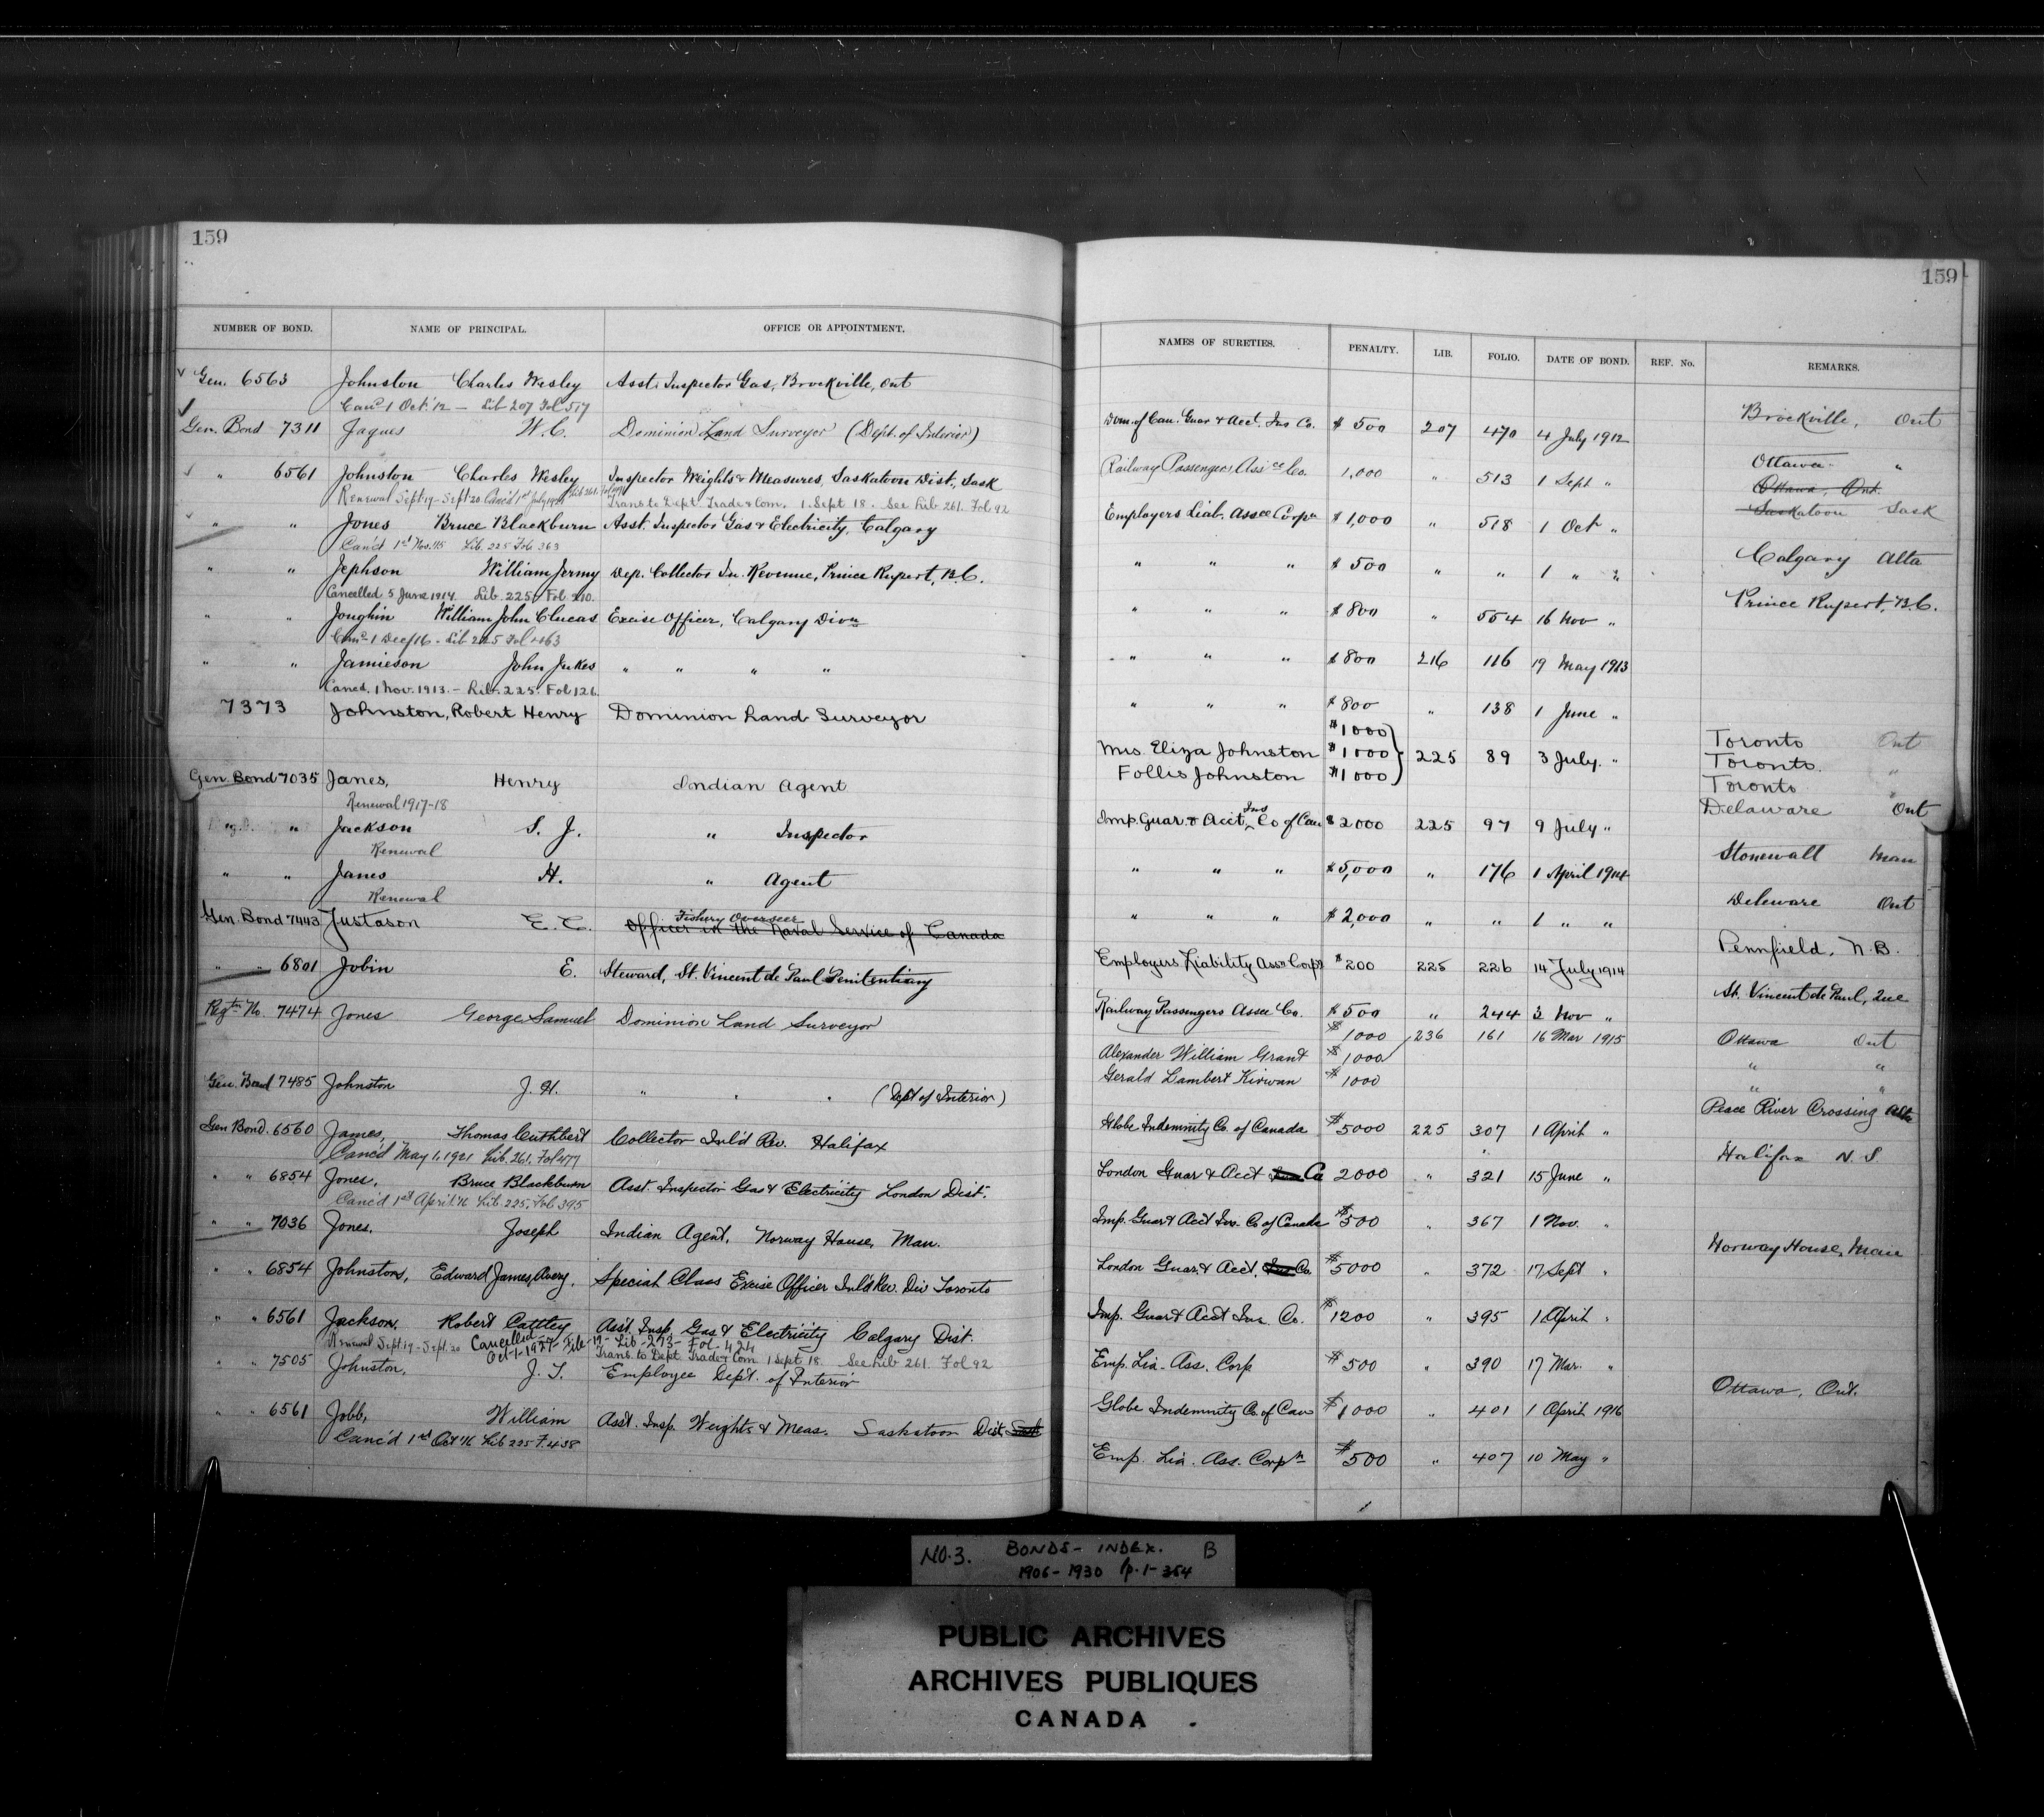 159
NUMBER OF BOND. NAME OF PRINCIPAL. OFFICE OR APPOINTMENT.
Gen. 6563 Johnston Charles Wesley Asst. Inspector Gas, Brockville, Ont
Canc'd 1 Oct. '12 — Lib 207 Fol 517
Gen. Bond 7311 Jaques W. C. Dominion Land Surveyor (Dept. of Interior)
" 6561 Johnston Charles Wesley Inspector Weights & Measures, Saskatoon Dist., Sask
Renewal Sept 19 - Sept 20 Canc'd 1st July 1921 Lib 261. Trans to Dept Trade & Com. 1 Sept 18. See Lib 261. Fol 92
" " Jones Bruce Blackburn Asst. Inspector Gas & Electricity, Calgary
Canc'd 1st Nov. '15 Lib. 225 Fol. 363
" " Jephson William Jermy Dep. Collector In. Revenue, Prince Rupert, B.C.
Cancelled 5 June 1914. Lib. 225, Fol. 210.
" " Joughin William John Clucas Excise Officer, Calgary Divn
Canc'd 1 Dec /16 - Lib 225 Fol 463
" " Jamieson John Jukes " " " "
Canc'd. 1 Nov. 1913. - Lib. 225. Fol 126.
7373 Johnston, Robert Henry Dominion Land Surveyor
Gen. Bond 7035 Janes, Henry Indian Agent
Renewal 1917-18
" Jackson S. J. " Inspector
Renewal
" " Janes H. " Agent
Renewal
Fishery Overseer
Gen. Bond 7443 Justason E. C. Officer in the Naval Service of Canada
" " 6801 Jobin E. Steward, St. Vincent de Paul Penitentiary
Regtn No. 7474 Jones George Samuel Dominion Land Surveyor
Gen. Bond 7485 Johnston J. H. " " " (Dept of Interior)
Gen Bond. 6560 James, Thomas Cuthbert Collector Inl'd Rev. Halifax
Canc'd May 1, 1921 Lib. 261. Fol 477
" " 6854 Jones, Bruce Blackburn Asst. Inspector Gas & Electricity London Dist.
Canc'd 1st April '16 Lib 225, Fol. 395
" " 7036 Jones, Joseph Indian Agent, Norway House, Man.
" " 6854 Johnston, Edward James, Avery, Special Class Excise Officer Inl'd Rev. Div Toronto
" " 6561 Jackson, Robert Cattley Asst. Insp. Gas & Electricity Calgary Dist.
Renewal Sept. 19 - Sept. 20 Cancelled Oct-1-1927- File 19 - Lib - 273 - Fol - 424
Trans. to Dept Trade & Com. 1 Sept 18. See Lib 261. Fol 92
" " 7505 Johnston, J. T. Employee Dept. of Interior
" " 6561 Jobb, William Asst. Insp. Weights & Meas. Saskatoon Dist. Sask
Canc'd 1st Oct '16 Lib 225 F. 438
159
NAMES OF SURETIES. PENALTY. LIB. FOLIO. DATE OF BOND. REF. No. REMARKS.
Dom. of Can. Guar & Acct. Ins Co. $ 500 207 470 4 July 1912 Brockville, Ont
Railway Passengers Assce Co. 1,000 " 513 1 Sept " Ottawa "
Ottawa, Ont.
Employers Liab. Assce Corpn $ 1,000 " 518 1 Oct " Saskatoon Sask
" " " $ 500 " " 1 " " Calgary Alta
" " " $ 800 " 554 16 Nov " Prince Rupert, B.C.
" " " $ 800 216 116 19 May 1913
" " " $ 800 " 138 1 June "
$1000
Mrs. Eliza Johnston $1000 225 89 3 July. " Toronto Ont
Follis Johnston $1000 Toronto. "
Toronto "
Imp. Guar. & Acct. Ins Co of Can $ 2000 225 97 9 July " Delaware Ont
" " " $5,000 " 176 1 April 1914 Stonewall Man
" " " $2,000 " " 1 " " Deleware Ont
Employers Liability Assn Corpn $ 200 225 226 14 July 1914 Pennfield, N.B.
Railway Passengers Assce Co. $ 500 " 244 3 Nov " St. Vincent de Paul, Que
$ 1000 236 161 16 Mar 1915 Ottawa Ont
Alexander William Grant $ 1000 " "
Gerald Lambert Kirwan $ 1000 " "
Globe Indemnity Co. of Canada $5000 225 307 1 April " Peace River Crossing Alta
London Guar & Acct Ins Co 2000 " 321 15 June " Halifax N.S.
Imp. Guar & Acct Ins. Co of Canada $500 " 367 1 Nov. "
London Guar. & Acct. Ins Co. $5000 " 372 17 Sept " Norway House, Man
Imp. Guar & Acct Ins. Co. $1200 " 395 1 April "
Emp. Lia. Ass. Corp $500 " 390 17 Mar. "
Globe Indemnity Co. of Can $1000 " 401 1 April 1916 Ottawa, Ont.
Emp. Lia. Ass. Corpn $500 " 407 10 May "
NO. 3. BONDS - INDEX. B
1906 - 1930 p. 1 - 354
PUBLIC ARCHIVES
ARCHIVES PUBLIQUES
CANADA